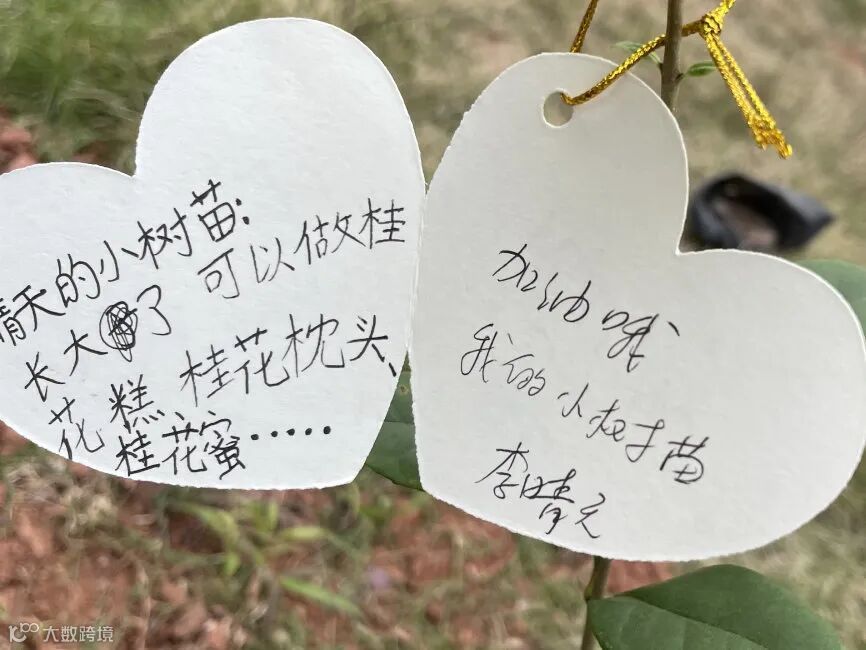 晴天的小树苗:
长大了可以做桂
花糕、桂花枕头、
桂花蜜……
加油哦
我的小树苗
李晴天
大数跨境